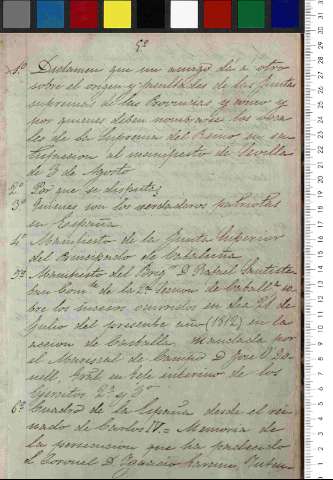 5º
1º Dictamen que un amigo dá á otro
sobre el origen y facultades de las Juntas
supremas de las Provincias y como y
por quienes deben nombrarse los voca
les de la Suprema del Reino en su
contestacion al manifiesto de Sevilla
de 3 de Agosto
2º Por que se disputa?
3º Quienes son los verdaderos patriotas
en España
4º Manifiesto de la Junta Superior
del Principado de Cataluña
5º Manifiesto del Brigr D. Rafael
Com.te de la 2ª division de Caballª so
bre los sucesos ocurridos en dia 21 de
Julio del presente año (1812) en la
accion de Castalla, mandada por
el Mariscal de Campo D. José O'Do
nell, Gral en Gefe interino de los
Egercitos 2º y 3º
6º Cuadro de la España desde el rei
nado de Carlos IV. = Memoria de
la persecucion que ha padecido
el Coronel D. Ignacio